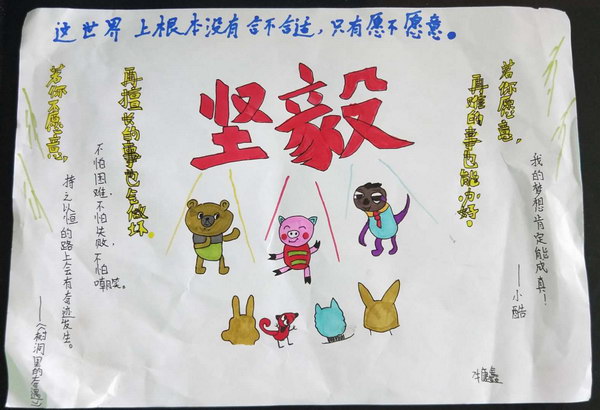 这世界上根本没有合不合适，只有愿不愿意。
坚毅
若你愿意，
再难的事也能办好。
我的梦想肯定能成真！
——小酷
再擅长的事也会做坏。
若你不愿意，
不怕困难，不怕失败，不怕
嘲笑。
持之以恒的路上会有奇迹发生。
——《树洞里的奇遇》